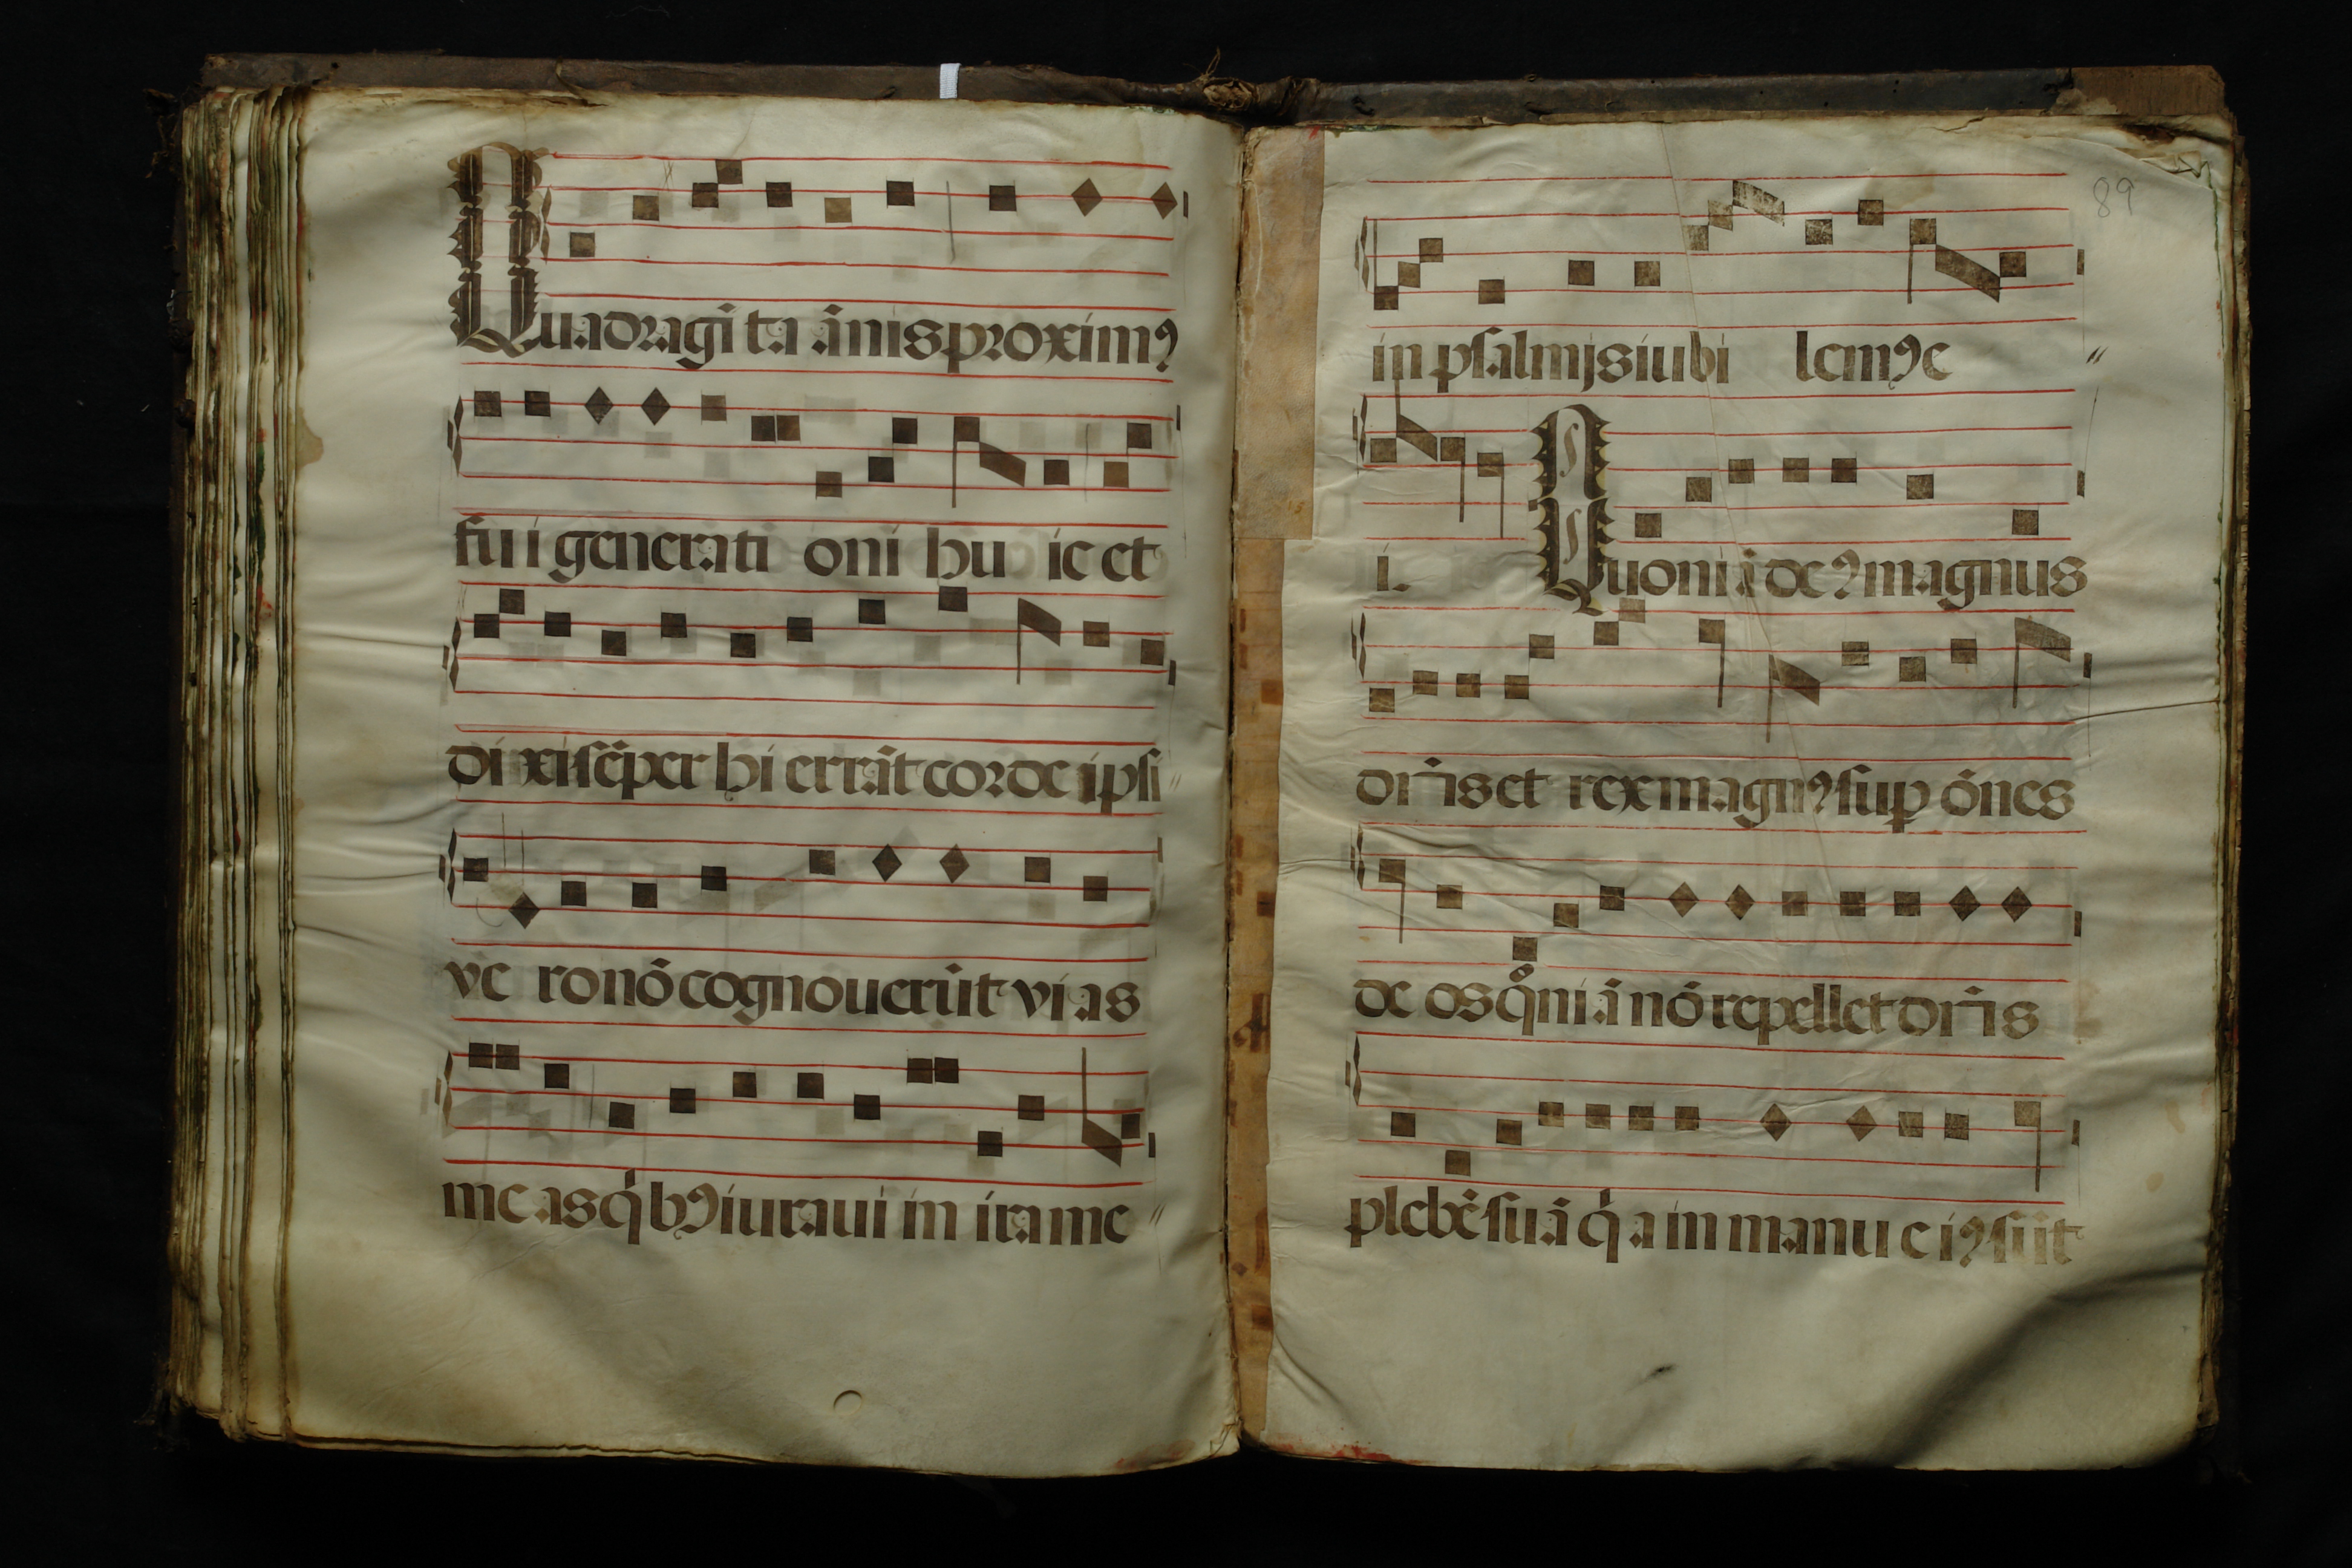 Quadragĩta ãnis proximꝰ
fui generati oni huic et
dixi sẽper hi errãt corde ipsi
vero nõ cognouerũt vias
meas q́bꝰ iuraui in ira me
89
in psalmis iubilemꝰ e
i. Quoniã deꝰ magnus
dñs et rex magnꝰ sup oẽs
deos qm̃iã nõ repellet dñs
plebẽ suã q́a in manu eiꝰ sũt